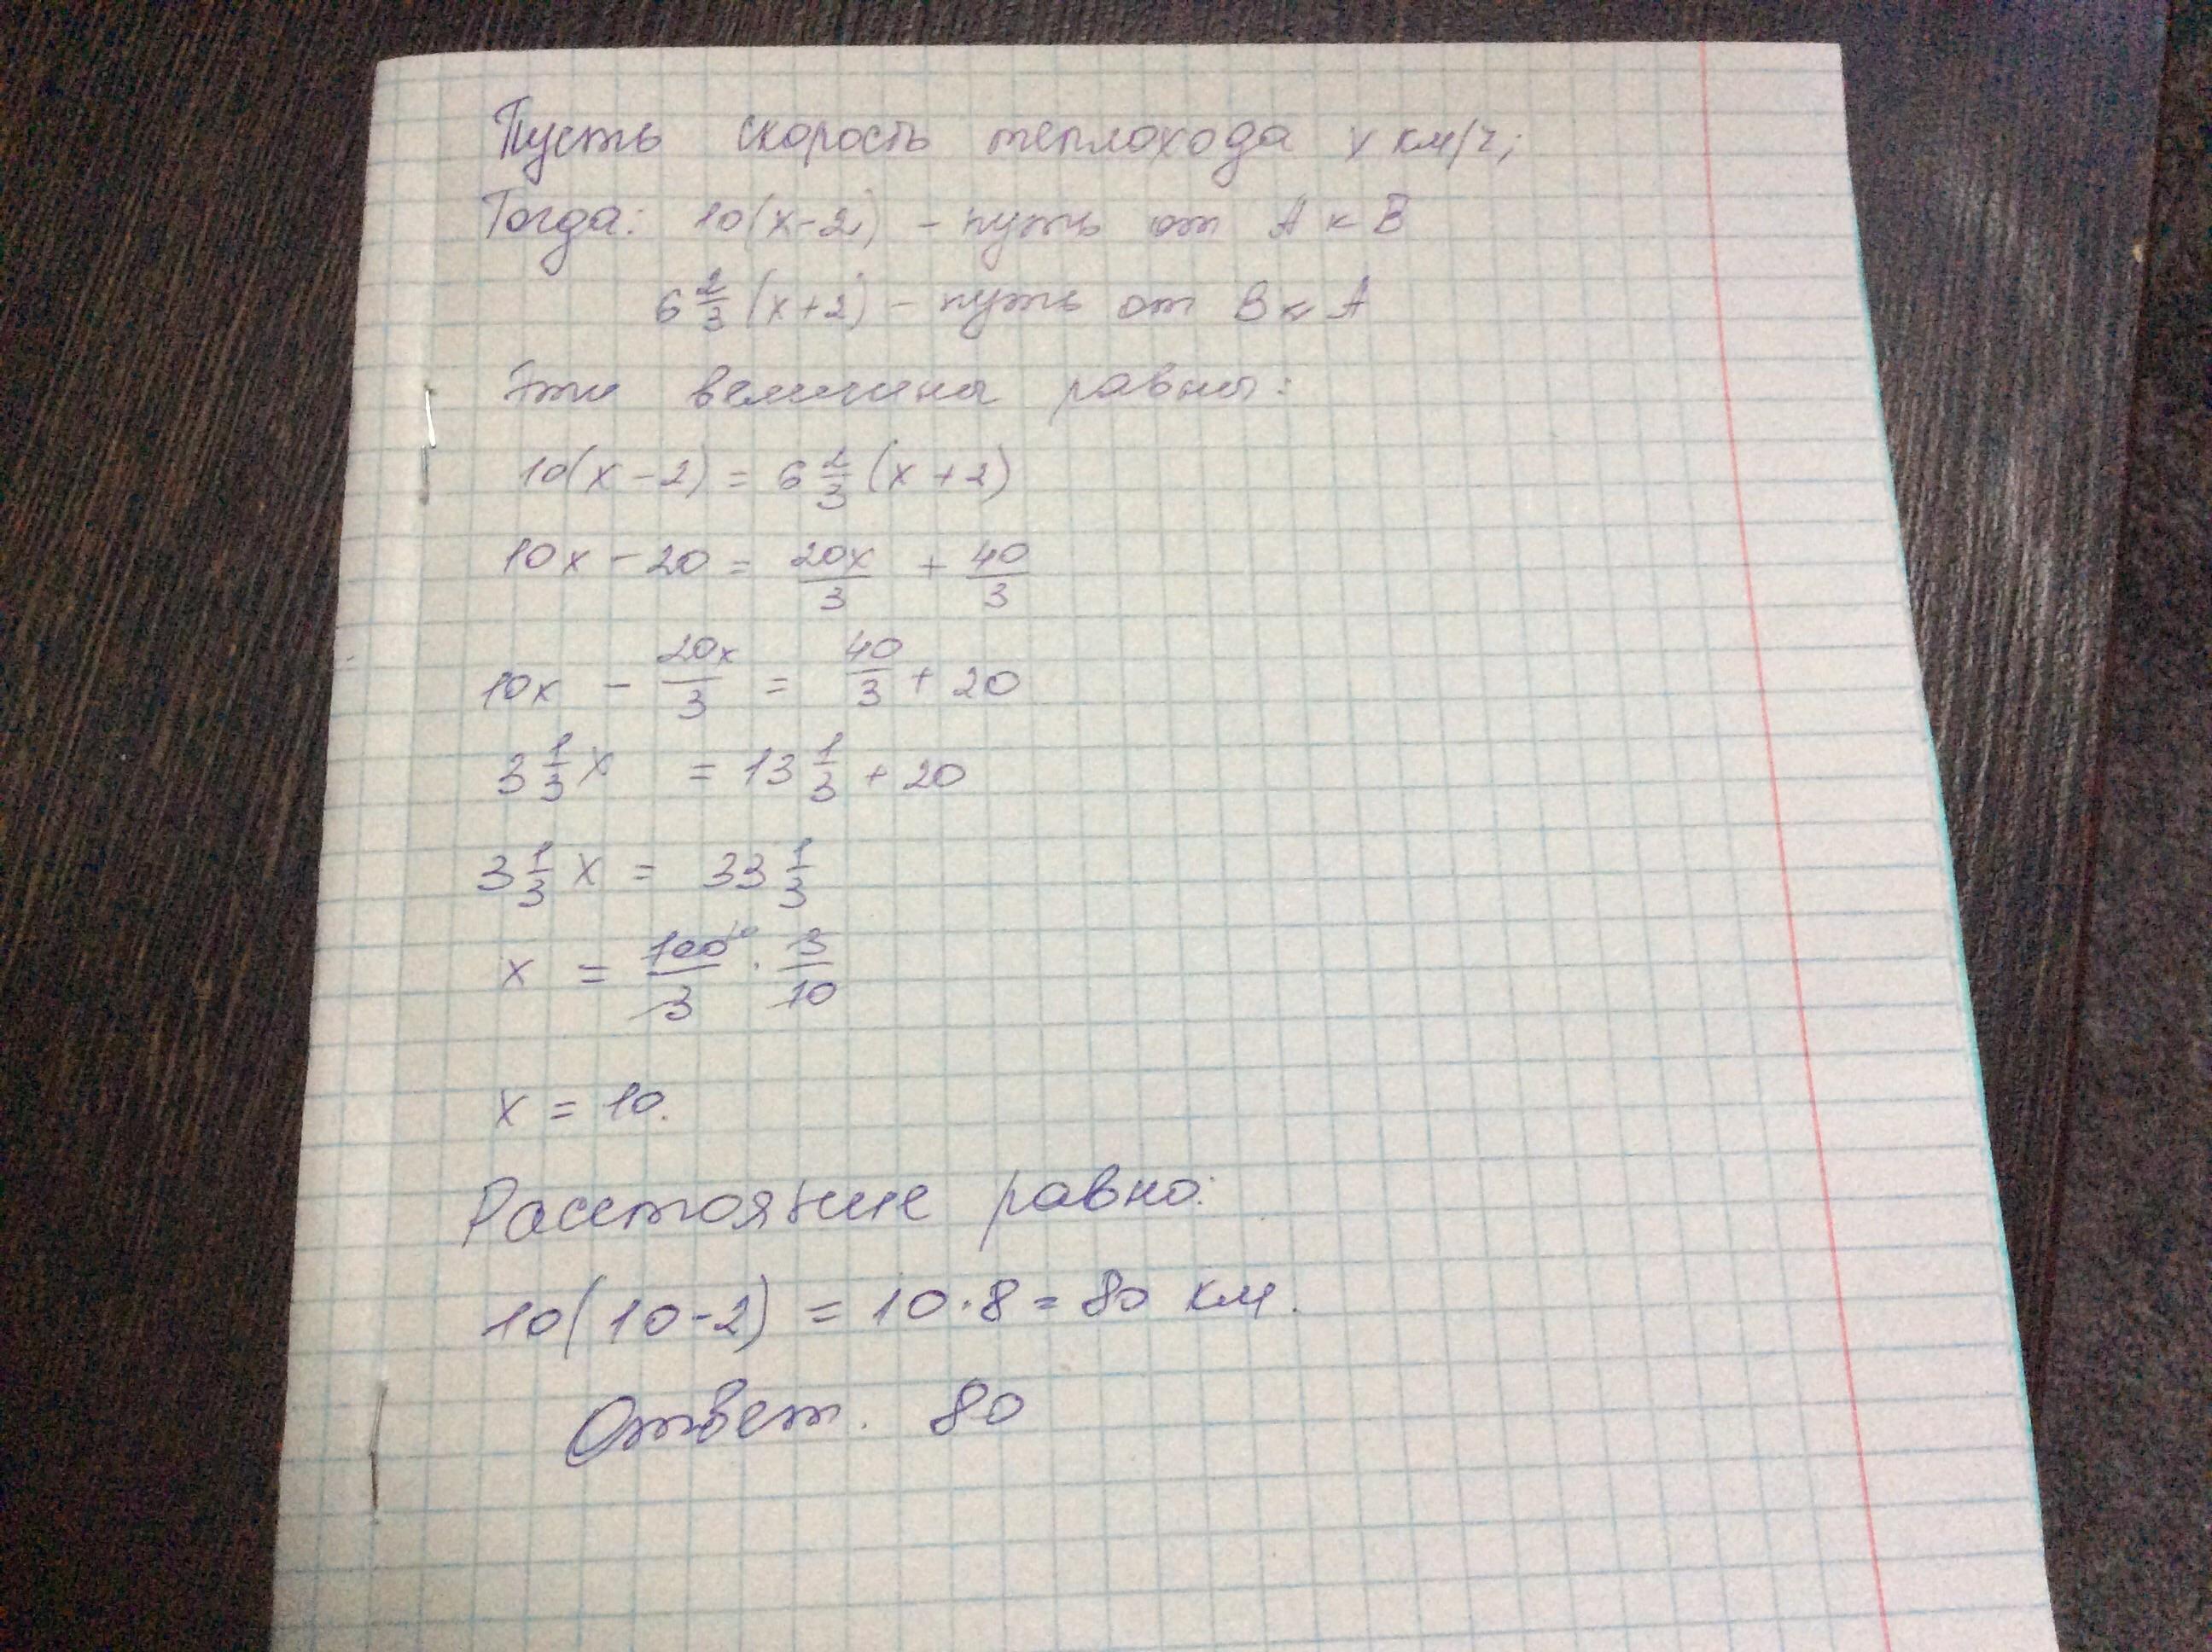 Пусть скорость теплохода x км/ч;
Тогда: 10(x-2) - путь от А к В
6 2/3 (x+2) - путь от В к А
Эти величины равны:
10(x-2) = 6 2/3 (x+2)
10x - 20 = 20x/3 + 40/3
10x - 20x/3 = 40/3 + 20
3 1/3 x = 13 1/3 + 20
3 1/3 x = 33 1/3
x = 100/3 10 · 3/10
x = 10.
Расстояние равно:
10(10-2) = 10·8 = 80 км.
Ответ. 80